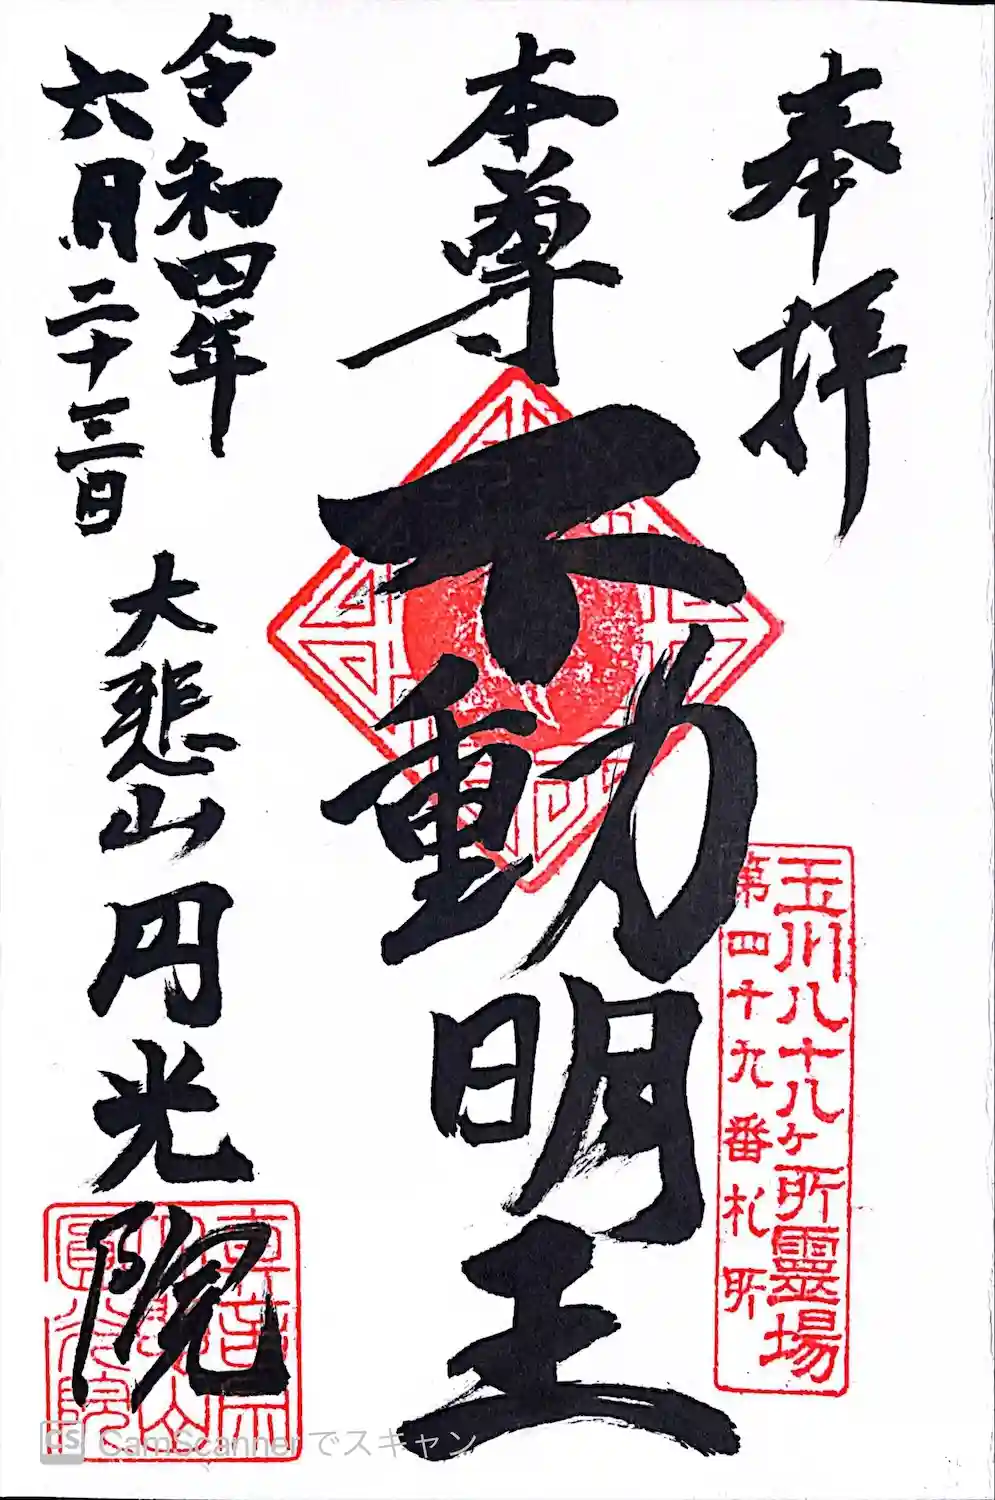 奉拝
本尊
不動明王
玉川八十八ヶ所靈場
第四十九番札所
令和四年
六月二十三日
大悲山円光院
CS CamScannerでスキャン